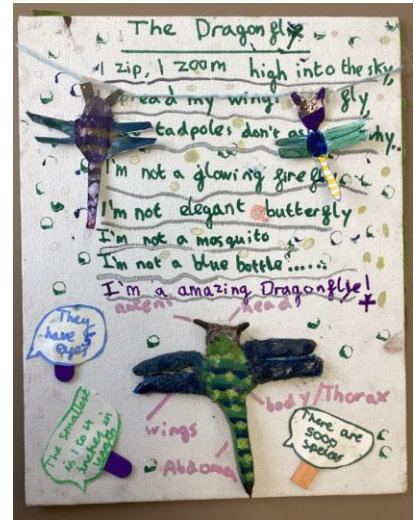 The Dragonfly
I zip, I zoom high into the sky,
spread my wings fly,
tadpoles don't as why..
I'm not a glowing firefly
I'm not elegant butterfly
I'm not a mosquito
I'm not a blue bottle......
I'm a amazing Dragonflye!
head
They have 2 eyes
body/Thorax
wings
The smallest is 1 to 4 inches in length
There are 5000 species
Abdomen